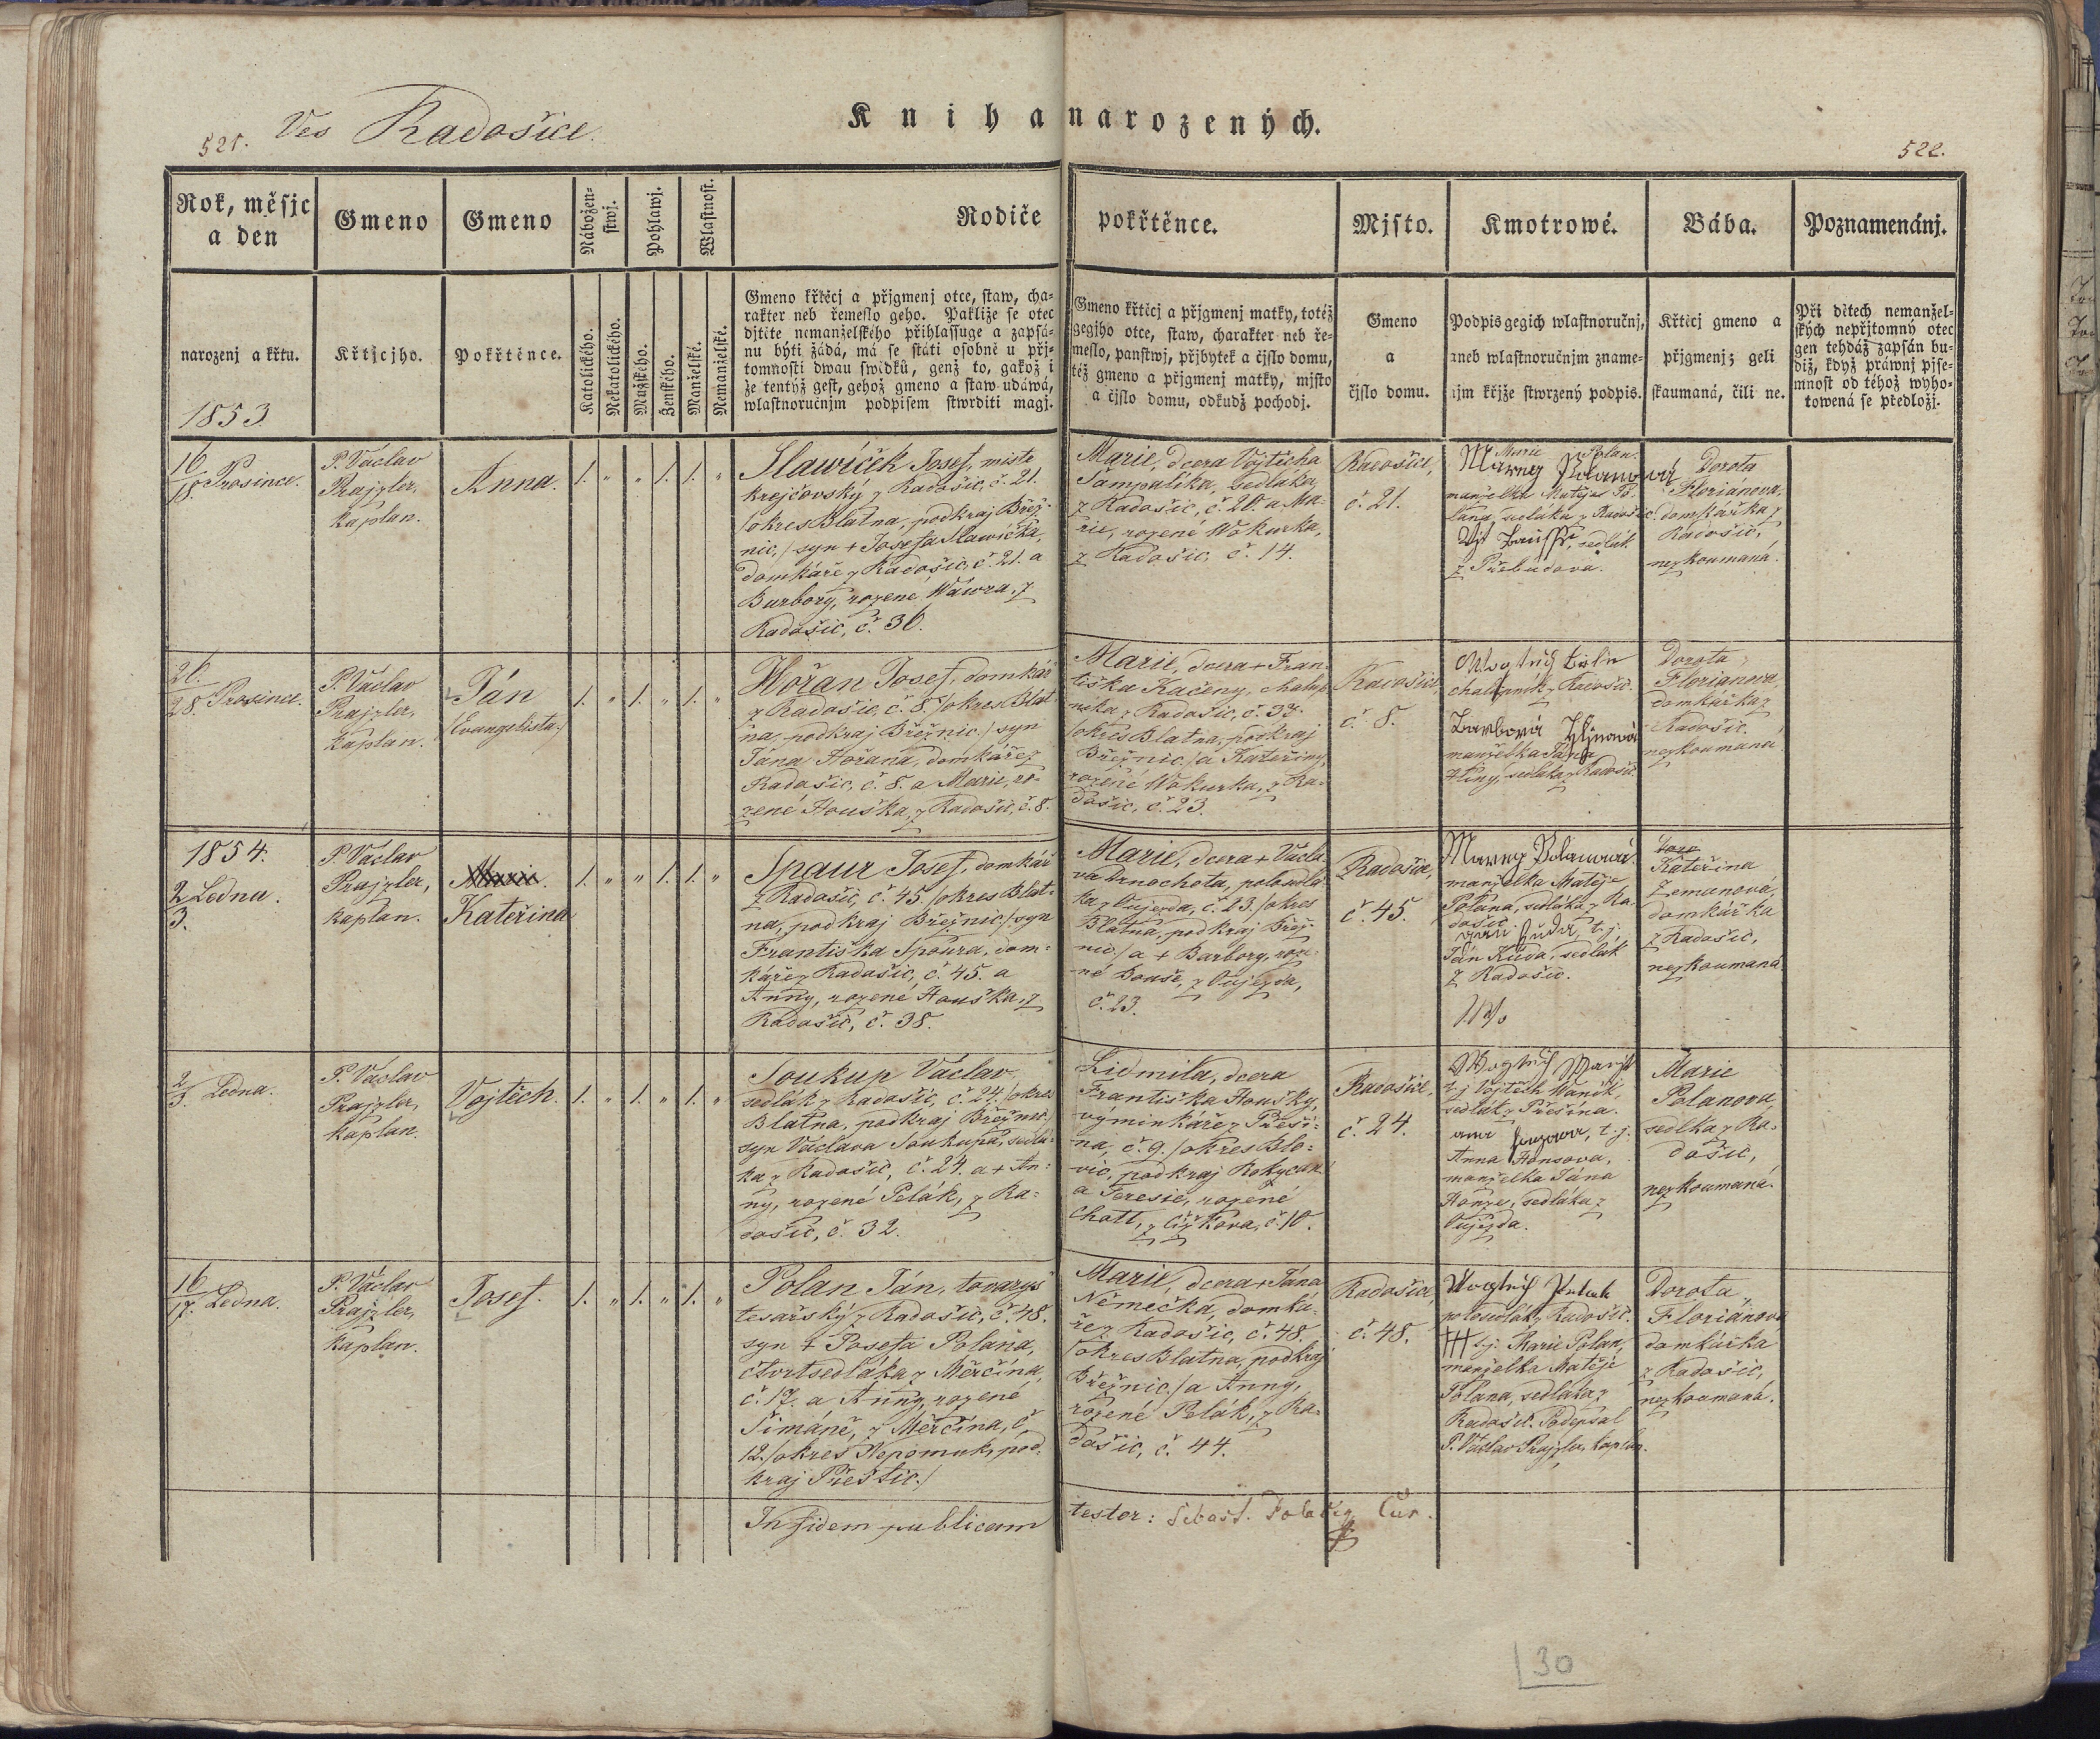 521. Ves Radošice.
Kniha narozených.
522.
Rok, měsjc
a den
Gmeno
Gmeno
Nábožen-
stwj.
Pohlawj.
Wlastnost.
Rodiče
pokřtěnce.
Mjsto.
Kmotrowé.
Bába.
Poznamenánj.
narozenj a křtu.
1853
Křtjcjho.
Pokřtěnce.
Katolického.
Nekatolického.
Mužského.
Ženského.
Manželské.
Nemanželské.
Gmeno křtěcj a přjgmenj otce, staw, cha-
rakter neb řemeslo geho. Pakliže se otec
djtěte nemanželského přihlassuge a zapsá-
nu býti žádá, má se státi osobně u přj-
tomnosti dwau swědků, genž to, gakož i
že tentýž gest, gehož gmeno a staw udáwá,
wlastnoručnjm podpisem stwrditi magj.
Gmeno křtěcj a přjgmenj matky, totéž
gegjho otce, staw, charakter neb ře-
meslo, panstwj, přjbytek a čjslo domu,
též gmeno a přjgmenj matky, mjsto
a čjslo domu, odkudž pocházj.
Gmeno
a
čjslo domu.
Podpis gegich wlastnoručnj,
aneb wlastnoručnjm zname-
njm křjže stwrzený podpis.
Křtěcj gmeno a
přjgmenj; geli
skaumaná, čili ne.
Při dětech nemanžel-
ských nepřjtomný otec
gen tehdáž zapsán bu-
diž, když práwnj pjse-
mnost od téhož wyho-
towená se předložj.
16
18. Prosince.
P. Václav
Prajzler,
kaplan.
Anna.
1. „ „ 1. 1. „
Slawíček Josef, mistr
krejčovský z Radošic, č. 21.
/okres Blatna, podkraj Břez-
nic,/ syn + Josefa Slawíčka,
domkáře z Radošic, č. 21. a
Barbory, rozené Wáwra, z
Radošic, č. 36.
Marie, dcera Vojtěcha
Šampalíka, sedláka
z Radošic, č. 20. a Ma-
rie, rozené Wokurka,
z Radošic, č. 14.
Radošice,
č. 21.
Marie Polan.
Marey Polanowá
manželka Matěje Po-
lana, sedláka z Radošic.
sedlák
z Přebudova.
Dorota
Floriánova,
domkářka z
Radošic,
nezkoumaná.
26.
28. Prosince.
P. Václav
Prajzler,
kaplan.
Ján
/Evangelista/
1. „ 1. „ 1. „
Hořan Josef, domkář
z Radošic, č. 8. /okres Blat-
na, podkraj Březnic,/ syn
Jána Hořana, domkáře z
Radošic, č. 8. a Marie, ro-
zené Houška, z Radošic, č. 8.
Marie, dcera + Fran-
tiška Kačeny, chalup-
níka z Radošic, č. 37.
/okres Blatna, podkraj
Březnic,/ a Kateřiny,
rozené Wokurka, z Ra-
došic, č. 23.
Radošice,
č. 8.
chalupník z Radošic.
manželka Jána
Hliny, sedláka z Radošic.
Dorota
Florianova,
domkářka z
Radošic.
nezkoumaná.
1854.
2 Ledna.
3.
P. Václav
Prajzler,
kaplan.
Marie.
Kateřina
1. „ „ 1. 1. „
Spaur Josef, domkář
z Radošic, č. 45. /okres Blat-
na, podkraj Březnic,/ syn
Františka Spoura, dom-
káře z Radošic, č. 45. a
Anny, rozené Houška, z
Radošic, č. 38.
Marie, dcera + Václa-
va Drnochota, polosedlá-
ka z Oujezda, č. 23. /okres
Blatna, podkraj Břez-
nic/ a + Barbory, roze-
né Bouše, z Oujezda,
č. 23.
Radošice,
č. 45.
Marey Polanowá
manželka Matěje
Polana, sedláka z Ra-
došic.
t. j.
Ján Kuda, sedlák
z Radošic.
Kateřina
Zemanová,
domkářka
z Radošic,
nezkoumaná.
2
3. Ledna.
P. Václav
Prajzler,
kaplan.
Vojtěch.
1. „ 1. „ 1. „
Soukup Václav,
sedlák z Radošic, č. 24. /okres
Blatna, podkraj Březnic,/
syn Václava Soukupa, sedlá-
ka z Radošic, č. 24. a + An-
ny, rozené Pelák, z Ra-
došic, č. 32.
Lidmila, dcera
Františka Housky,
výminkáře z Přeší-
na, č. 9. /okres Blo-
vic, podkraj Rokycan/
a Teresie, rozené
Chott, z Čížkova, č. 10.
Radošice,
č. 24.
t. j. Vojtěch Waněk,
sedlák z Přešína.
t. j.
Anna Honsova,
manželka Jána
Honzes, sedláka z
Oujezda.
Marie
Polanova,
sedlka z Ra-
došic,
nezkoumaná.
16
17. Ledna.
P. Václav
Prajzler,
kaplan.
Josef.
1. „ 1. „ 1. „
Polan Ján, tovaryš
tesařský z Radošic, č. 48.
syn + Josefa Polana,
čtvrtsedláka z Měrčína,
č. 17. a Anny, rozené
Šimáně, z Měrčína, č.
12. /okres Nepomuk, pod-
kraj Přeštic./
Marie, dcera + Jána
Němečka, domká-
ře z Radošic, č. 48.
/okres Blatna, podkraj
Březnic,/ a Anny,
rozené Pelák, z Ra-
došic, č. 44.
Radošice,
č. 48.
polosedlák z Radošic.
+++ t. j. Marie Polan,
manželka Matěje
Polana, sedláka z
Radošic. Podepsal
P. Václav Prajzler, kaplan.
Dorota
Floriánova
domkářka
z Radošic,
nezkoumaná.
In fidem publicam
testor: Sebast.
30